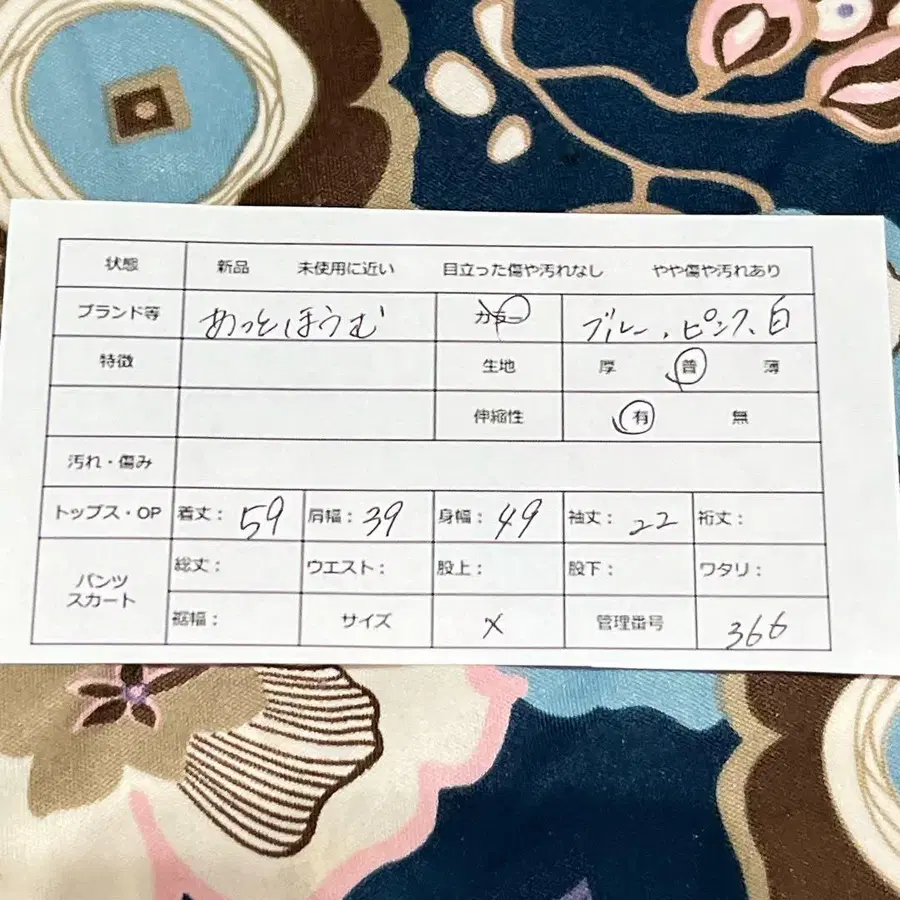 状態 新品 未使用に近い 目立った傷や汚れなし やや傷や汚れあり
ブランド等 あっとほうむ カラー ブルー、ピンク、白
特徴 生地 厚 普 薄
伸縮性 有 無
汚れ・傷み
トップス・OP 着丈: 59 肩幅: 39 身幅: 49 袖丈: 22 裄丈:
パンツ スカート 総丈: ウエスト: 股上: 股下: ワタリ:
裾幅: サイズ X 管理番号 366